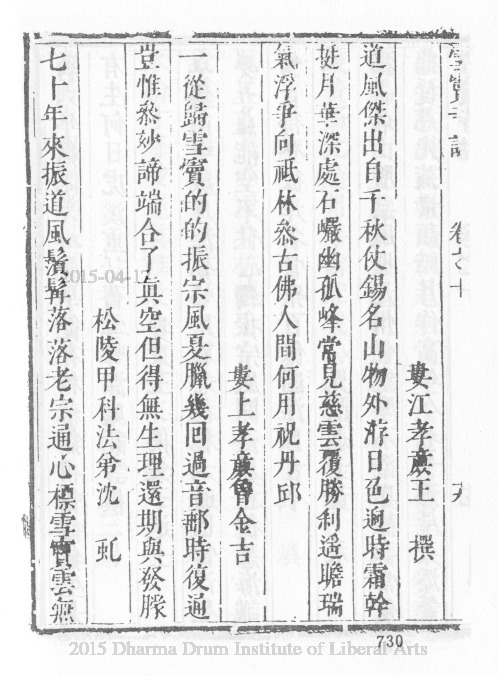 雪竇寺誌 卷之十
婁江孝廉王 撰
道風傑出自千秋仗錫名山物外游日色逈時霜幹
挺月華深處石巖幽孤峰常見慈雲覆勝刹遥瞻瑞
氣浮爭向祇林叅古佛人間何用祝丹邱
婁上孝廉魯金吉
一從歸雪竇的的振宗風夏臘幾回過音郵時復通
豈惟叅妙諦端合了真空但得無生理還期與發朦
松陵甲科法弟沈 虬
七十年來振道風鬚髯落落老宗通心標雪竇雲無
730
2015-04-17
2015 Dharma Drum Institute of Liberal Arts